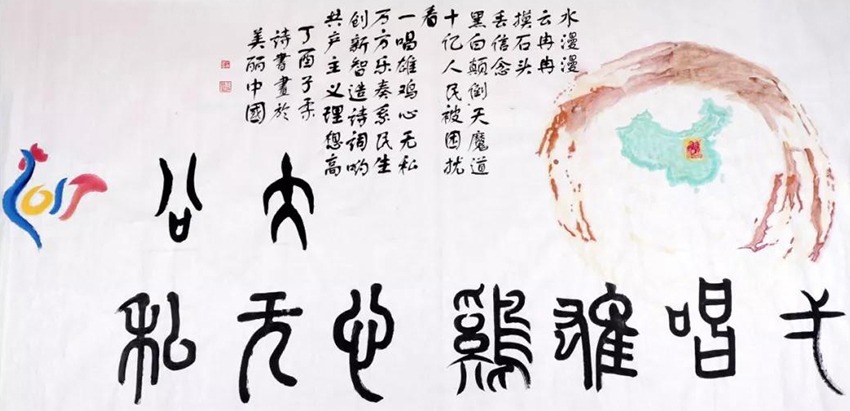 水漫漫
云冉冉
摸石头
丢信念
黑白颠倒天魔道
十亿人民被困扰
看
一唱雄鸡心无私
万方乐奏系民生
创新智造诗调哟
共产主义理想高
丁酉子
诗書畫於
美丽中國
唱雄鷄心无私
大公
2017